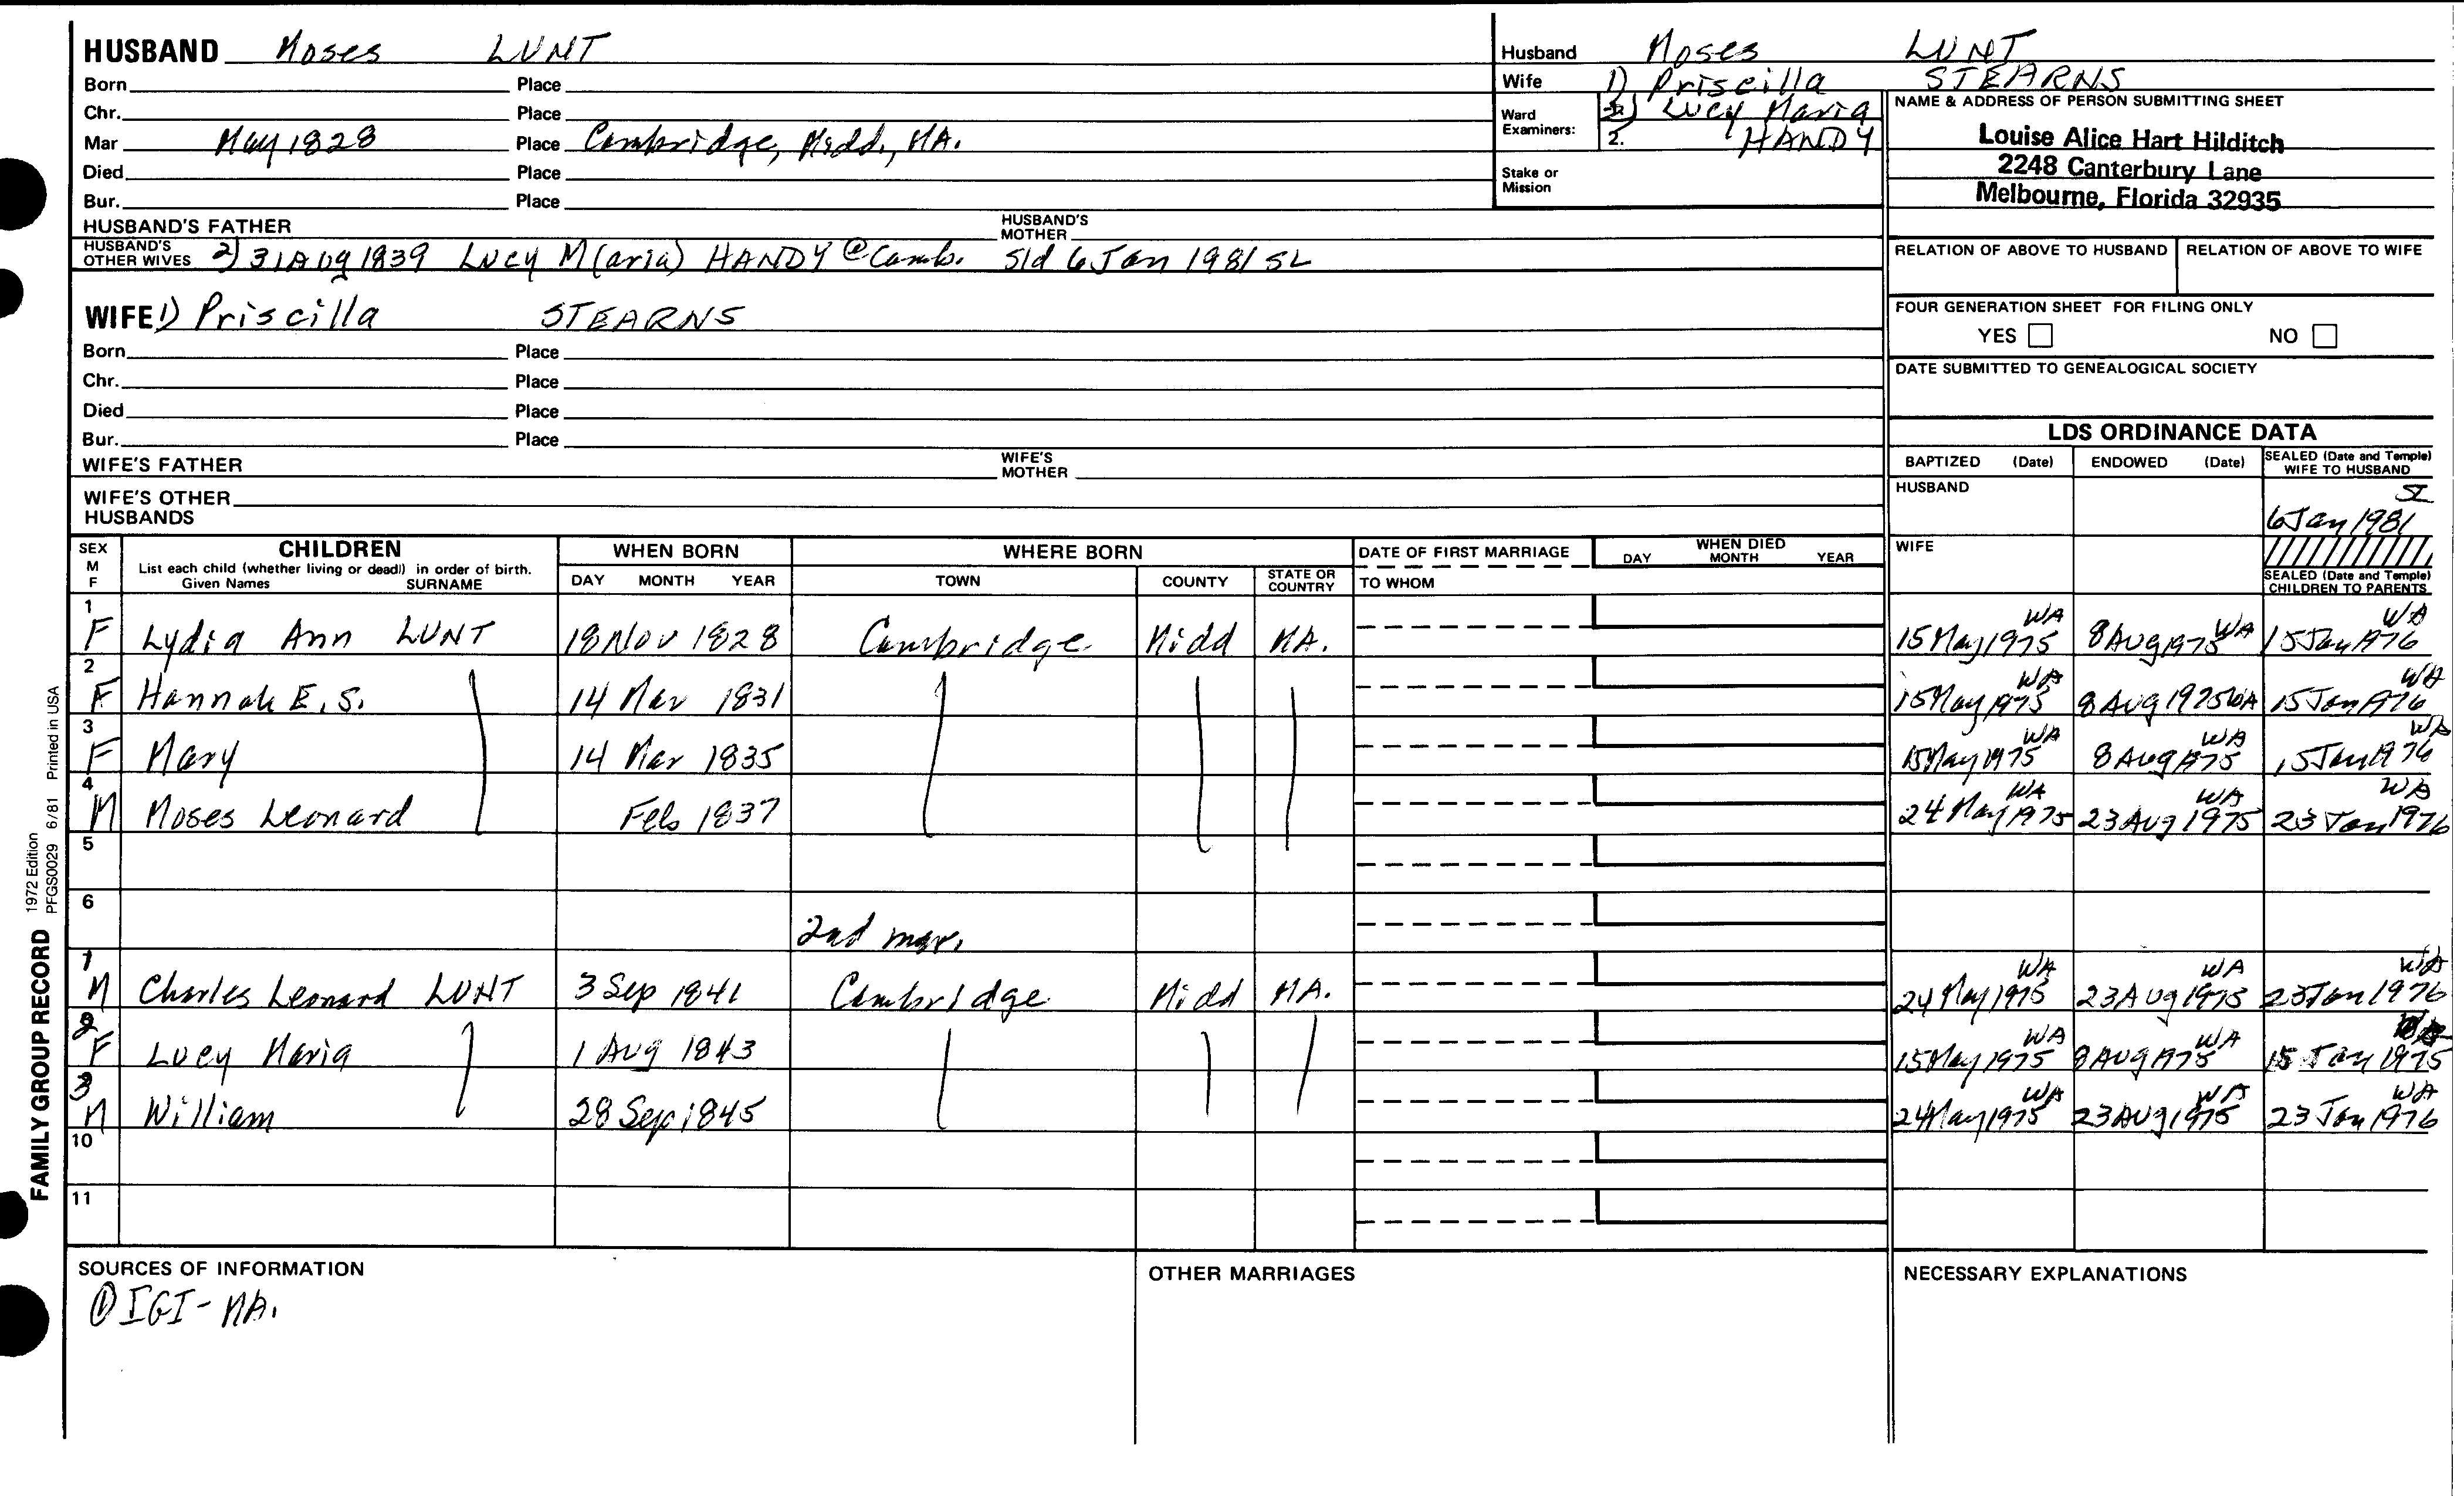 HUSBAND Moses LUNT
Born Place
Chr. Place
Mar May 1828 Place Cambridge, Midd., MA.
Died Place
Bur. Place
HUSBAND'S FATHER HUSBAND'S MOTHER
HUSBAND'S OTHER WIVES 2) 31 Aug 1839 Lucy M(aria) HANDY @ Camb. Sld 6 Jan 1981 SL
WIFE 1) Priscilla STEARNS
Born Place
Chr. Place
Died Place
Bur. Place
WIFE'S FATHER WIFE'S MOTHER
WIFE'S OTHER HUSBANDS
Husband Moses LUNT
Wife 1) Priscilla STEARNS
Ward Examiners: 2) Lucy Maria
2. HANDY
Stake or Mission
NAME & ADDRESS OF PERSON SUBMITTING SHEET
Louise Alice Hart Hilditch
2248 Canterbury Lane
Melbourne, Florida 32935
RELATION OF ABOVE TO HUSBAND RELATION OF ABOVE TO WIFE
FOUR GENERATION SHEET FOR FILING ONLY
YES NO
DATE SUBMITTED TO GENEALOGICAL SOCIETY
LDS ORDINANCE DATA
BAPTIZED (Date) ENDOWED (Date) SEALED (Date and Temple) WIFE TO HUSBAND
HUSBAND SL
6 Jan 1981
WIFE
SEALED (Date and Temple) CHILDREN TO PARENTS
SEX M F CHILDREN WHEN BORN WHERE BORN DATE OF FIRST MARRIAGE WHEN DIED
List each child (whether living or dead) in order of birth.
Given Names SURNAME DAY MONTH YEAR TOWN COUNTY STATE OR COUNTRY TO WHOM DAY MONTH YEAR
1 F Lydia Ann LUNT 18 Nov 1828 Cambridge Midd MA. 15 May 1975 WA 8 Aug 1975 WA 15 Jan 1976 WA
2 F Hannah E. S. 14 Mar 1831 15 May 1975 WA 8 Aug 1975 WA 15 Jan 1976 WA
3 F Mary 14 Mar 1835 15 May 1975 WA 8 Aug 1975 WA 15 Jan 1976 WA
4 M Moses Leonard Feb 1837 24 May 1975 WA 23 Aug 1975 WA 23 Jan 1976 WA
5
6 2nd mar.
1 M Charles Leonard LUNT 3 Sep 1841 Cambridge Midd MA. 24 May 1975 WA 23 Aug 1975 WA 23 Jan 1976 WA
2 F Lucy Maria 1 Aug 1843 15 May 1975 WA 8 Aug 1975 WA 15 Jan 1975
3 M William 28 Sep 1845 24 May 1975 WA 23 Aug 1975 WA 23 Jan 1976 WA
10
11
SOURCES OF INFORMATION
① IGI - MA.
OTHER MARRIAGES
NECESSARY EXPLANATIONS
FAMILY GROUP RECORD 1972 Edition
PFGS0029 6/81 Printed in USA